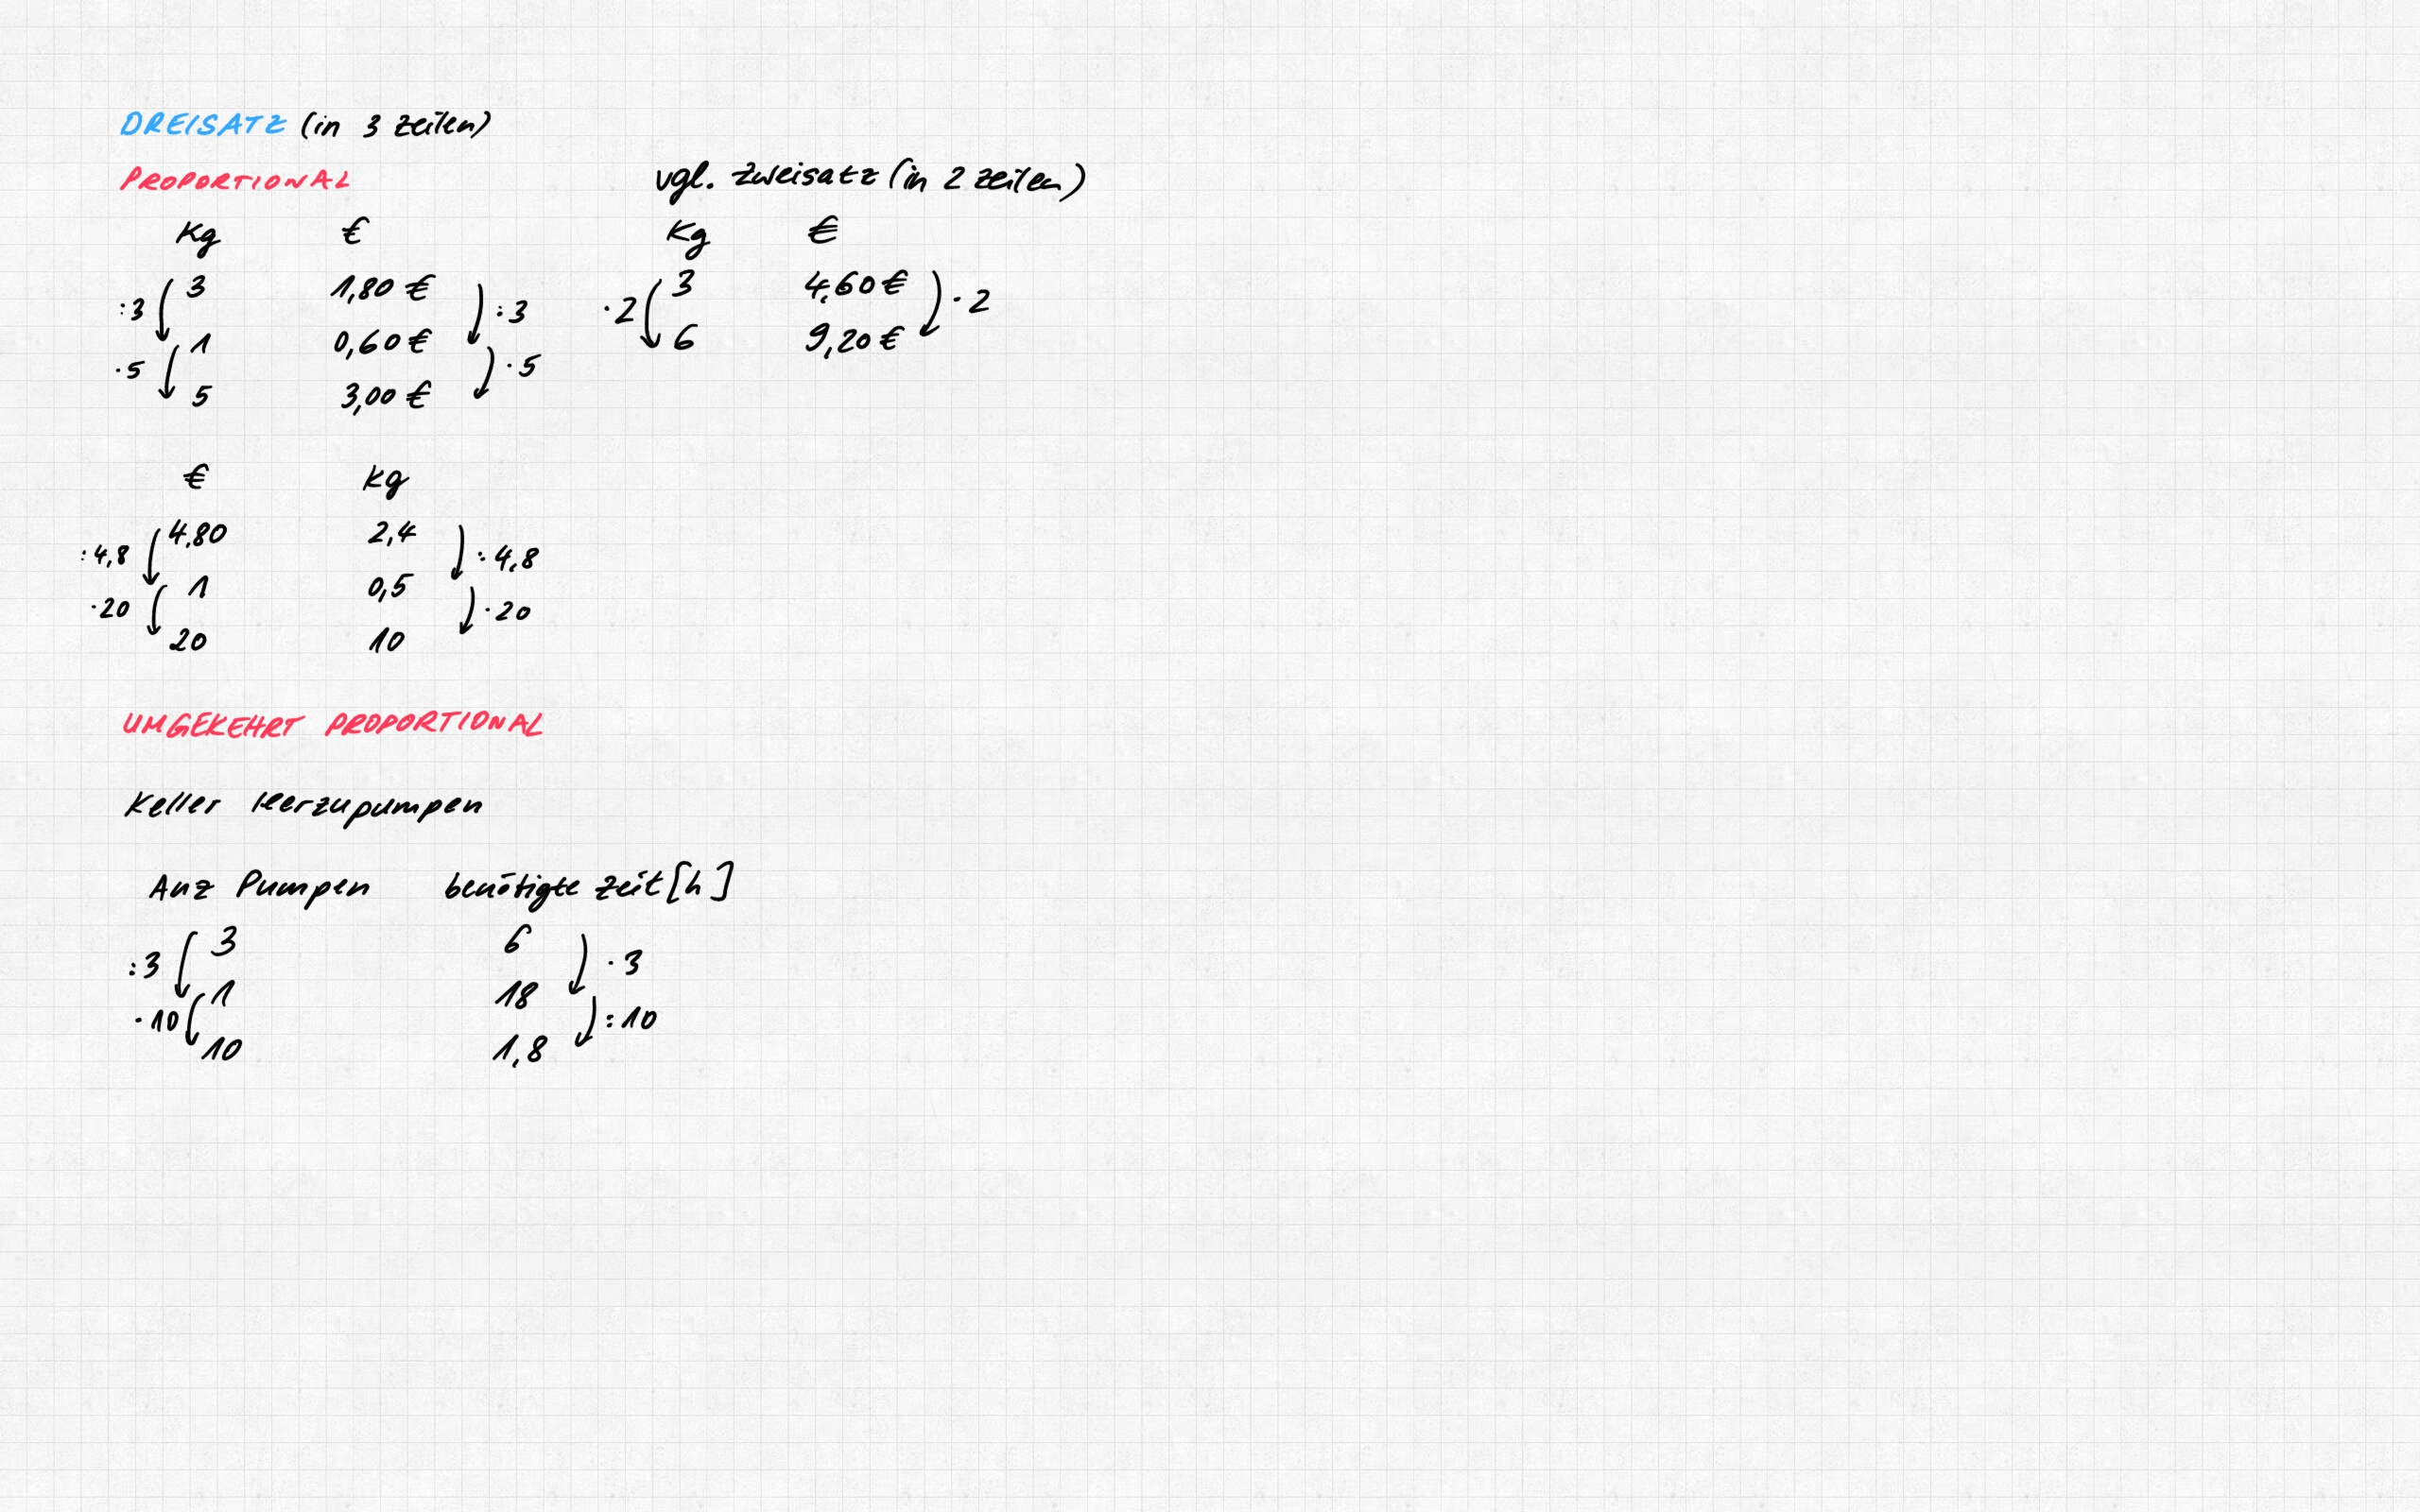 DREISATZ (in 3 Zeilen)
PROPORTIONAL
kg €
:3 3 1,80 € :3
·5 1 0,60 € ·5
5 3,00 €
vgl. Zweisatz (in 2 Zeilen)
kg €
·2 3 4,60 € ·2
6 9,20 €
€ kg
:4,8 4,80 2,4 :4,8
·20 1 0,5 ·20
20 10
UMGEKEHRT PROPORTIONAL
Keller leerzupumpen
Anz Pumpen benötigte Zeit [h]
:3 3 6 ·3
·10 1 18 :10
10 1,8